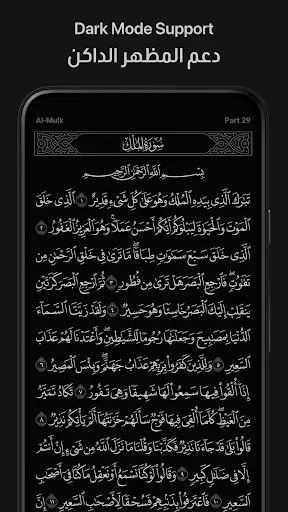 Dark Mode Support
دعم المظهر الداكن
Al-Mulk
Part 29
سُورَةُ المُلْكِ
بِسْمِ اللَّهِ الرَّحْمَٰنِ الرَّحِيمِ
تَبَٰرَكَ ٱلَّذِى بِيَدِهِ ٱلْمُلْكُ وَهُوَ عَلَىٰ كُلِّ شَىْءٍ قَدِيرٌ ١ ٱلَّذِى خَلَقَ
ٱلْمَوْتَ وَٱلْحَيَوٰةَ لِيَبْلُوَكُمْ أَيُّكُمْ أَحْسَنُ عَمَلًا وَهُوَ ٱلْعَزِيزُ ٱلْغَفُورُ ٢
ٱلَّذِى خَلَقَ سَبْعَ سَمَٰوَٰتٍ طِبَاقًا مَّا تَرَىٰ فِى خَلْقِ ٱلرَّحْمَٰنِ مِن
تَفَٰوُتٍ فَٱرْجِعِ ٱلْبَصَرَ هَلْ تَرَىٰ مِن فُطُورٍ ٣ ثُمَّ ٱرْجِعِ ٱلْبَصَرَ كَرَّتَيْنِ
يَنقَلِبْ إِلَيْكَ ٱلْبَصَرُ خَاسِئًا وَهُوَ حَسِيرٌ ٤ وَلَقَدْ زَيَّنَّا ٱلسَّمَآءَ
ٱلدُّنْيَا بِمَصَٰبِيحَ وَجَعَلْنَٰهَا رُجُومًا لِّلشَّيَٰطِينِ وَأَعْتَدْنَا لَهُمْ عَذَابَ
ٱلسَّعِيرِ ٥ وَلِلَّذِينَ كَفَرُوا۟ بِرَبِّهِمْ عَذَابُ جَهَنَّمَ وَبِئْسَ ٱلْمَصِيرُ ٦
إِذَآ أُلْقُوا۟ فِيهَا سَمِعُوا۟ لَهَا شَهِيقًا وَهِىَ تَفُورُ ٧ تَكَادُ تَمَيَّزُ
مِنَ ٱلْغَيْظِ كُلَّمَآ أُلْقِىَ فِيهَا فَوْجٌ سَأَلَهُمْ خَزَنَتُهَآ أَلَمْ يَأْتِكُمْ نَذِيرٌ ٨
قَالُوا۟ بَلَىٰ قَدْ جَآءَنَا نَذِيرٌ فَكَذَّبْنَا وَقُلْنَا مَا نَزَّلَ ٱللَّهُ مِن شَىْءٍ إِنْ أَنتُمْ
إِلَّا فِى ضَلَٰلٍ كَبِيرٍ ٩ وَقَالُوا۟ لَوْ كُنَّا نَسْمَعُ أَوْ نَعْقِلُ مَا كُنَّا فِىٓ أَصْحَٰبِ
ٱلسَّعِيرِ ١٠ فَٱعْتَرَفُوا۟ بِذَنۢبِهِمْ فَسُحْقًا لِّأَصْحَٰبِ ٱلسَّعِيرِ ١١